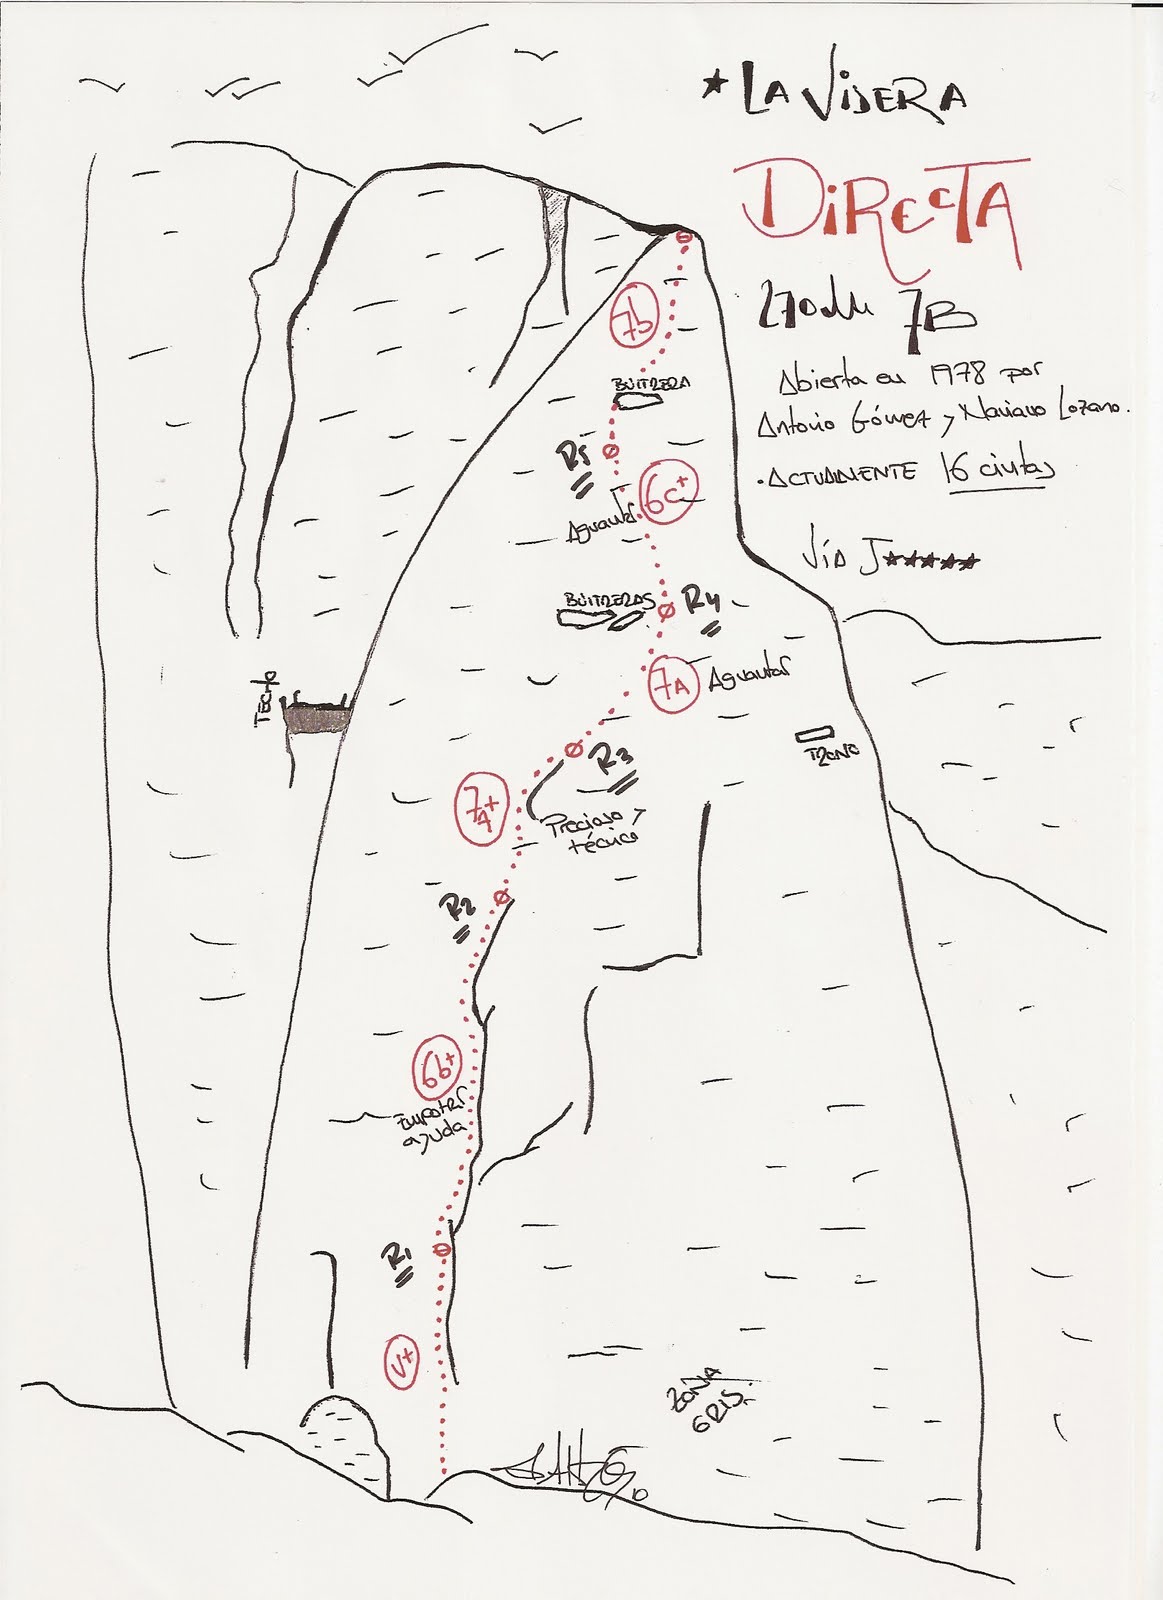 ★ LA VISERA
DIRECTA
270 M 7B
Abierta en 1978 por
Antonio Gómez y Mariano Lozano.
• ACTUALMENTE 16 cintas
Vía J★★★★★
7b
BUITRERA
R5
6c+
Aguantar
BUITRERAS
R4
7A
Aguantar
TECHO
R3
TRONO
7A+
Precioso y
técnico
R2
6b+
Empotrar
ayuda
R1
V+
ZONA
GRIS